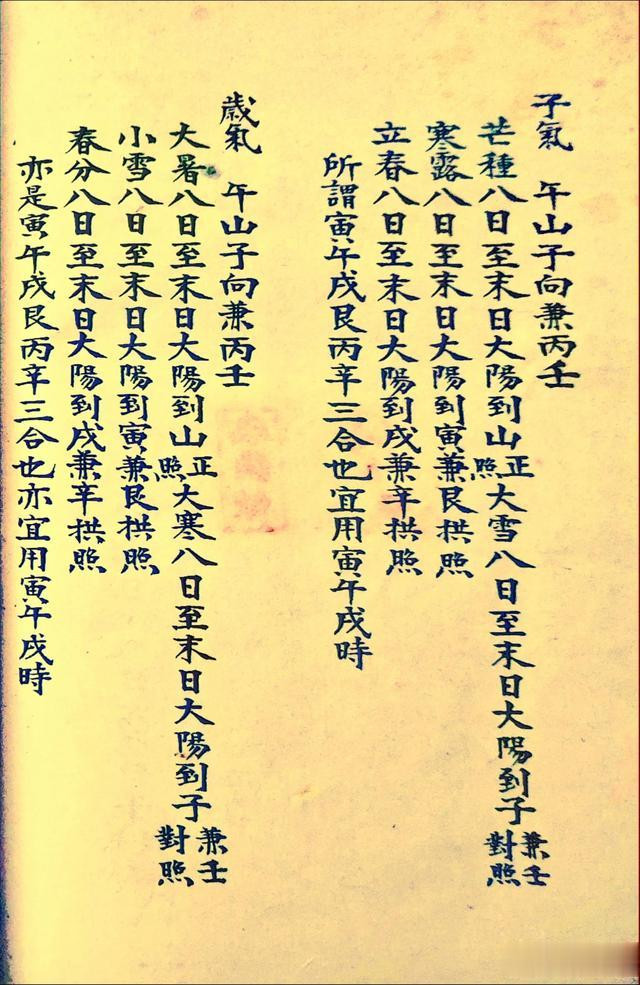 子氣　午山子向兼丙壬
芒種八日至末日大陽到山正照大雪八日至末日大陽到子兼壬對照
寒露八日至末日大陽到寅兼艮拱照
立春八日至末日大陽到戌兼辛拱照
所謂寅午戌艮丙辛三合也宜用寅午戌時
歲氣　午山子向兼丙壬
大暑八日至末日大陽到山正照大寒八日至末日大陽到子兼壬對照
小雪八日至末日大陽到寅兼艮拱照
春分八日至末日大陽到戌兼辛拱照
亦是寅午戌艮丙辛三合也亦宜用寅午戌時